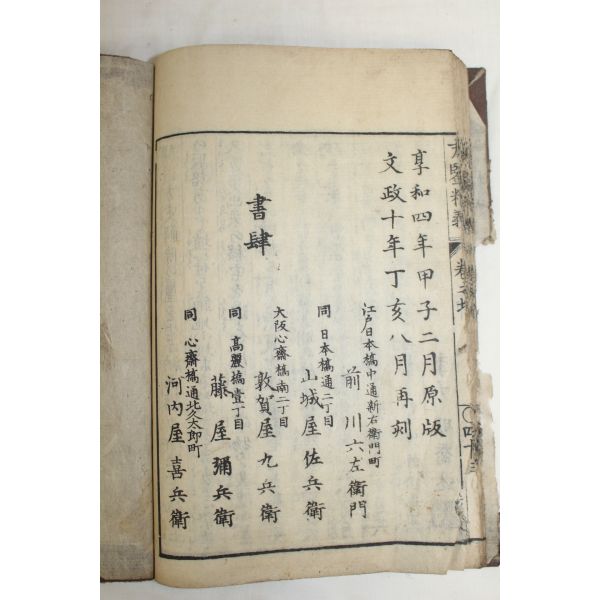 享和四年甲子二月原版
文政十年丁亥八月再刻
江戸日本橋中通新右衛門町
前川六左衛門
同 日本橋通二丁目
山城屋佐兵衛
書肆
大阪心齋橋南二丁目
敦賀屋九兵衛
同 高麗橋壹丁目
藤屋彌兵衛
同 心齋橋通北久太郎町
河内屋喜兵衛